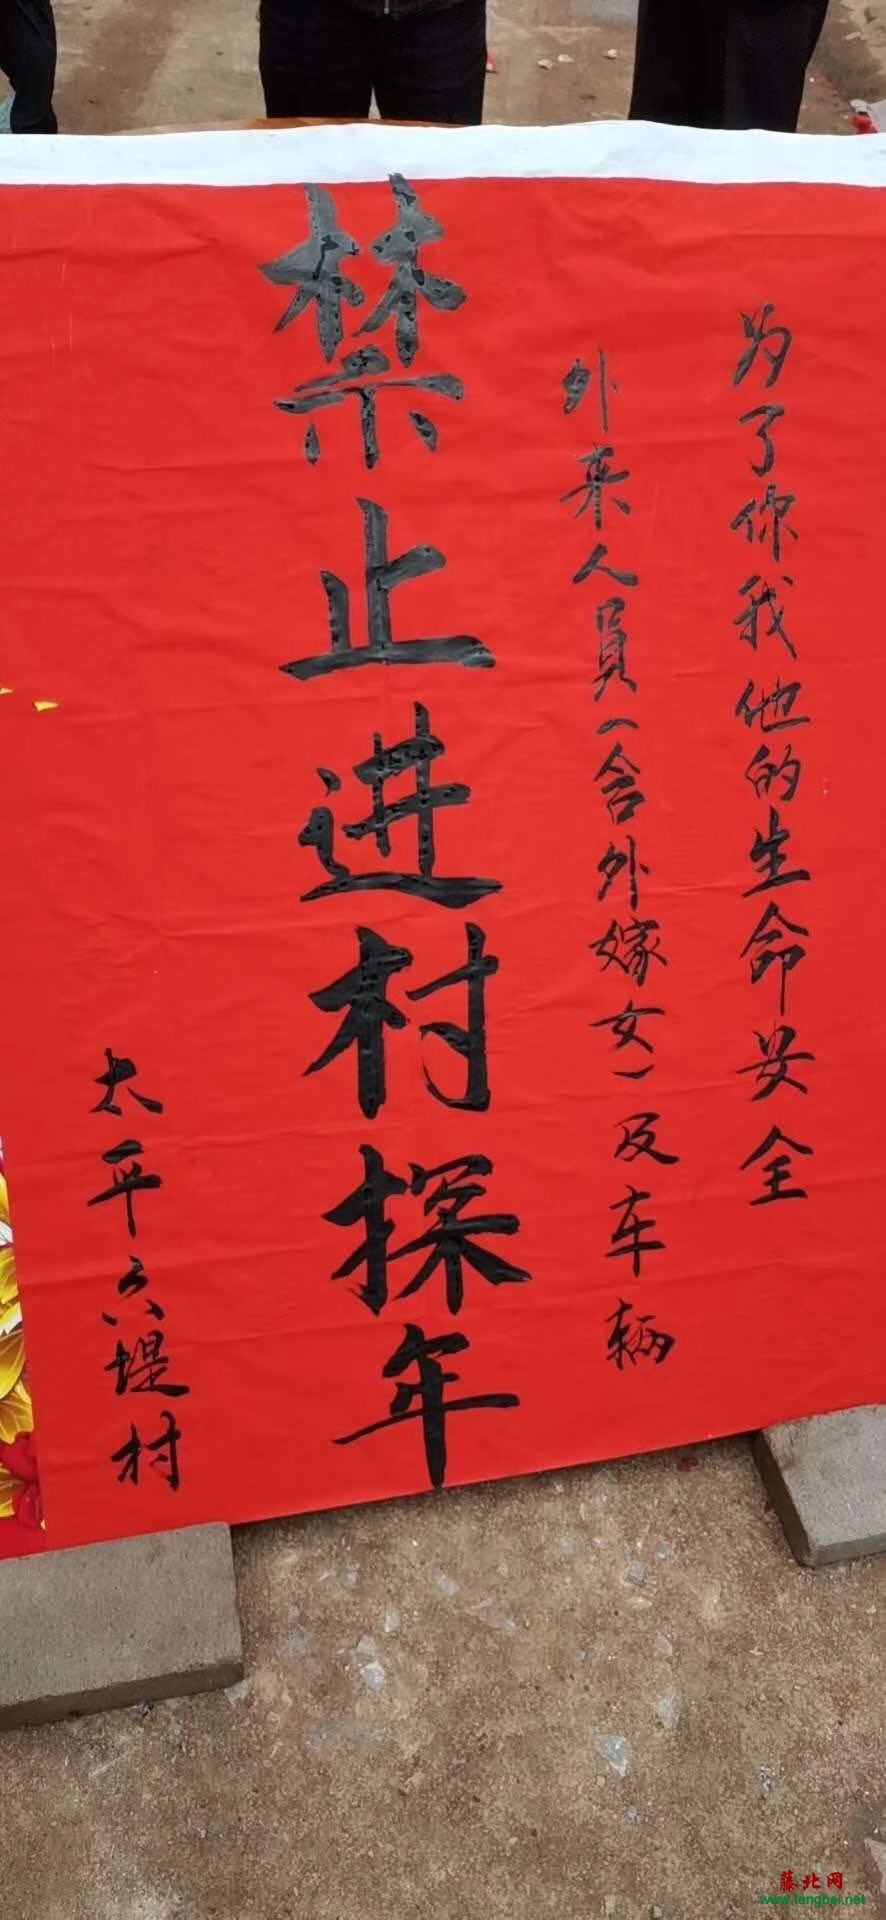 为了你我他的生命安全
外来人員(含外嫁女)及车辆
禁止进村探年
太平六堤村
藤北网
www.tengbei.net